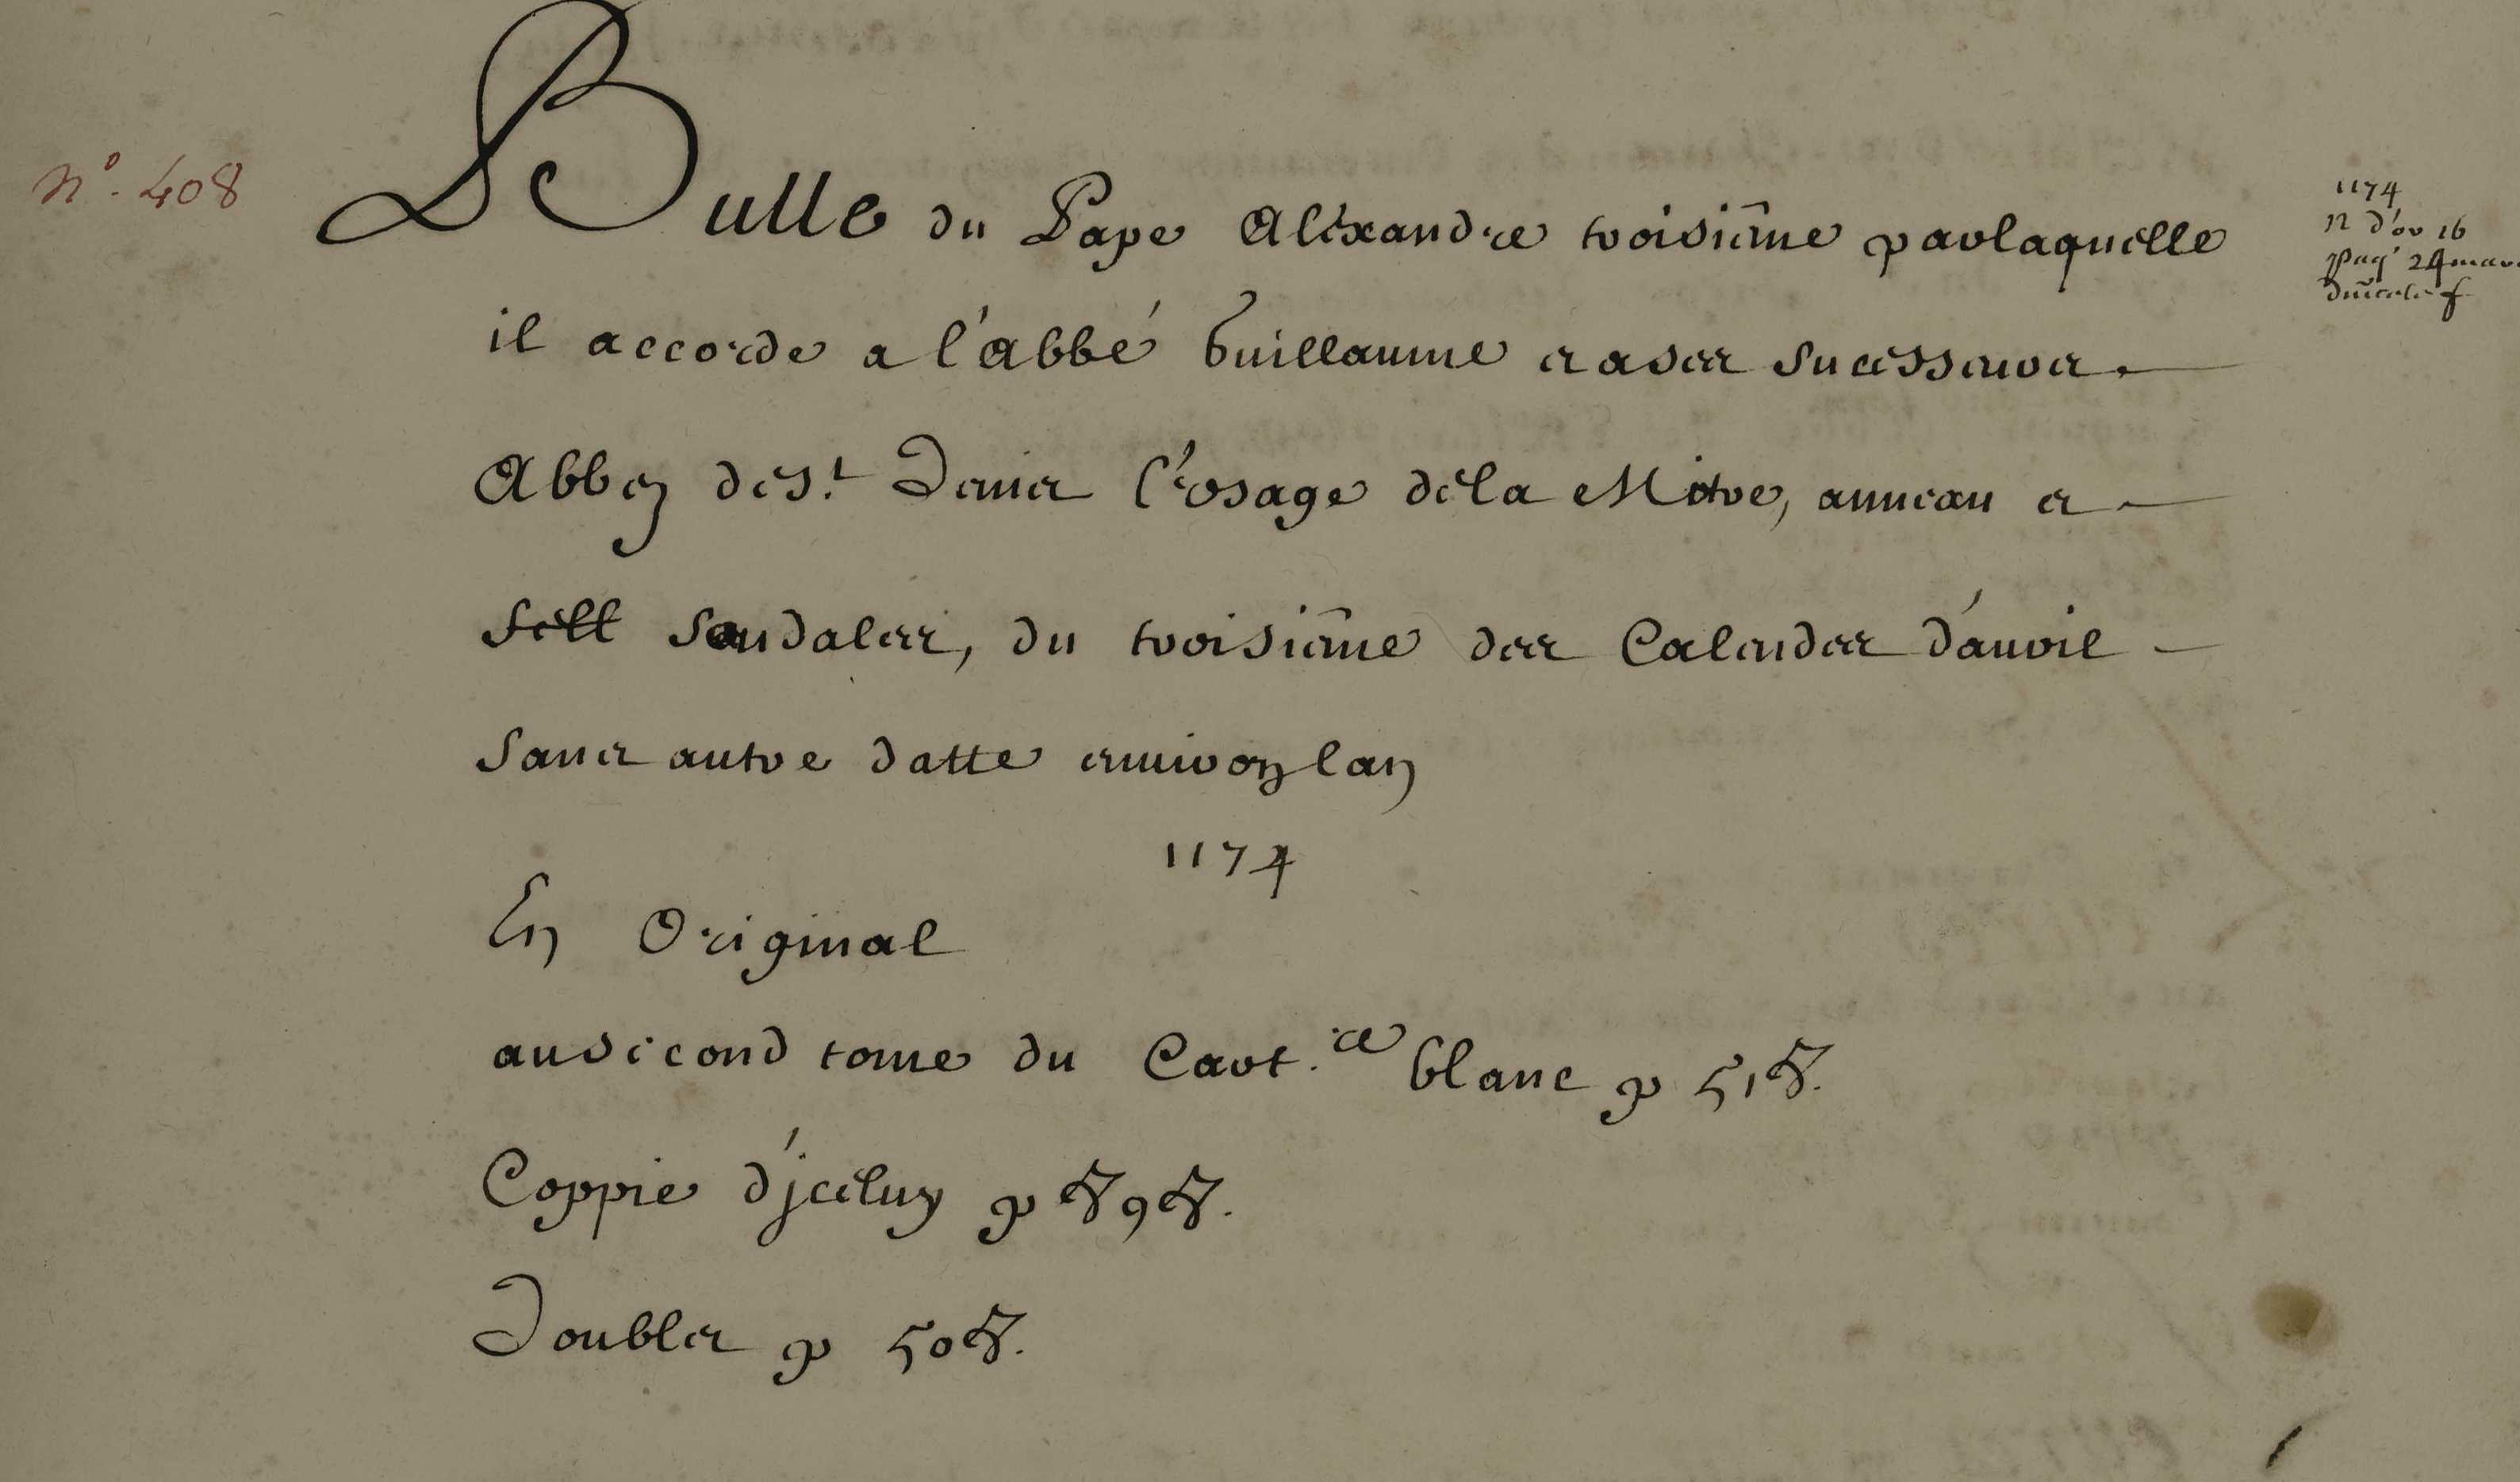 N° 408
Bulle du Pape Aléxandre troisiême par laquelle
1174
il accorde a l'abbé Guillaume et a ses sucesseurs
Abbez de S.t Denis l'usage de la Mitre, anneau et
sell sandales, du troisiême des Calendes d'auril
sans autre datte enuiron lan
1174
En Original
au second tome du Cart.re blanc p 518.
Coppie d'jceluy p 898.
Doubles p 508.